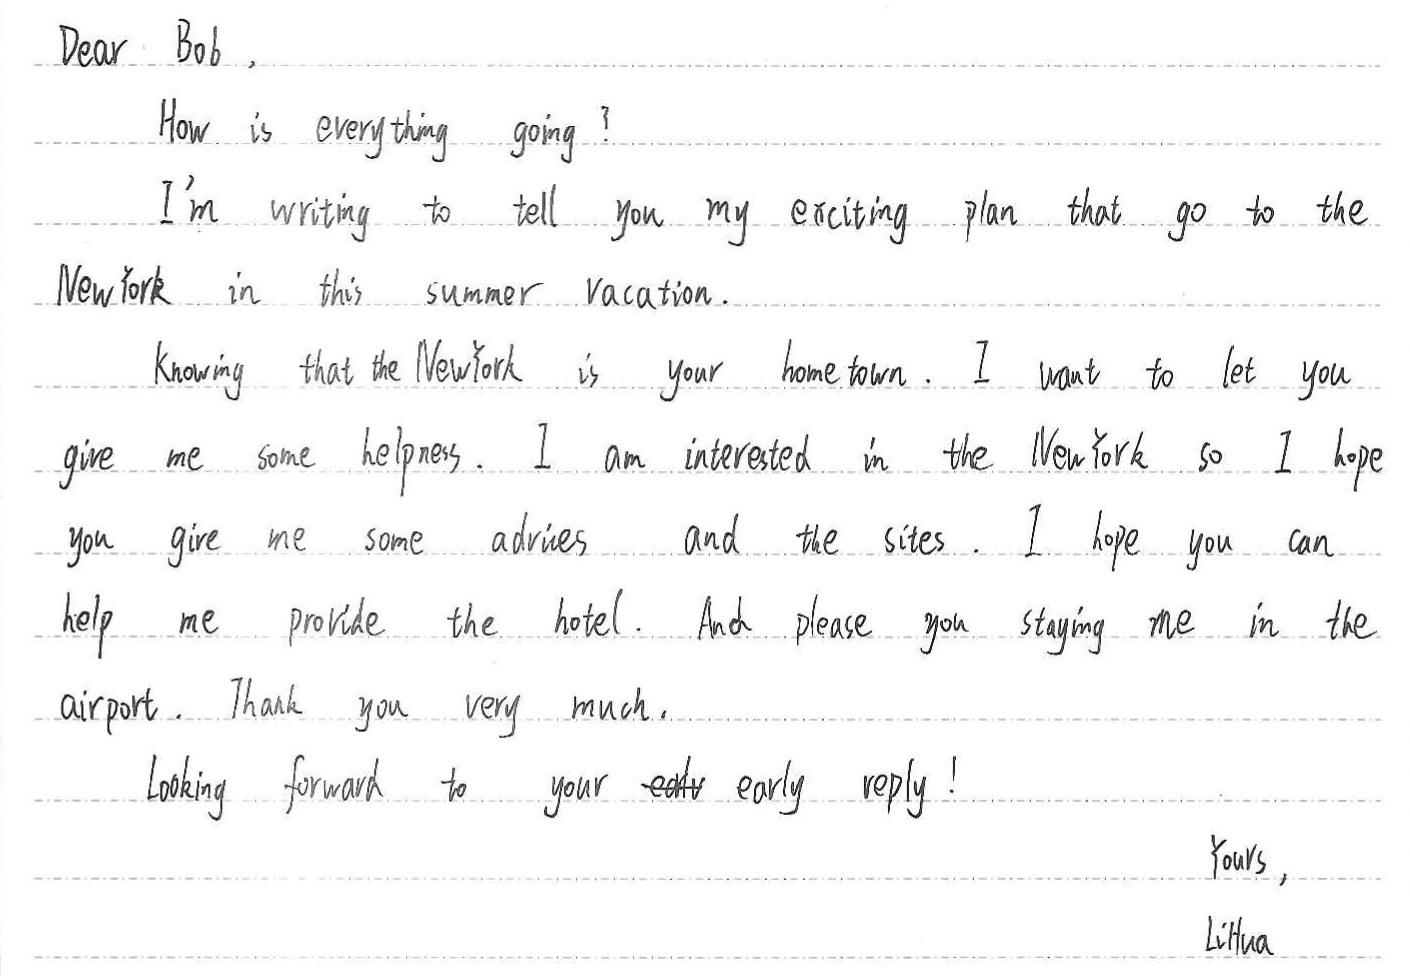 Dear Bob,
How is everything going?
I'm writing to tell you my exciting plan that go to the
New York in this summer vacation.
Knowing that the New York is your hometown. I want to let you
give me some helpness. I am interested in the New York so I hope
you give me some advices and the sites. I hope you can
help me provide the hotel. And please you staying me in the
airport. Thank you very much.
Looking forward to your early reply!
Yours,
LiHua